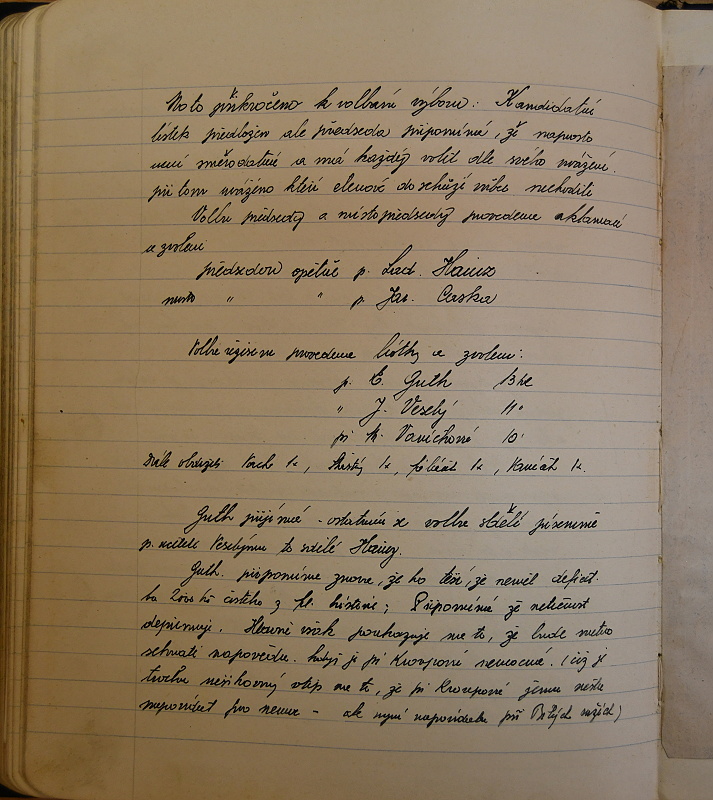 Na to přikročeno k volbám výboru: Kandidátní
lístek předložen ale předseda připomíná, že naprosto
není směrodatné a má každý volit dle svého uvážení.
při tom uváženo kteří členové do schůzí vůbec nechodili
Volba předsedy a místopředsedy provedena aklamací
a zvoleni
předsedou opětně p. Lad. Hainz
místo " " p Jar. Cerska
Volba režisera provedena lístky a zvoleni:
p. E. Guth 13 hl
" J. Veselý 11"
pí M. Vaníčková 10'
Dále obdrželi Koch 1x, 1x, 1x, 1x.
Guth přijímá - ostatním se volba sdělí písemně
p. učiteli Veselýmu to sdělí Hainz.
Guth. připomíná znova, že ho těší, že neměl deficit.
ba 2000 Kč čistého z hl. ; Připomíná že netečnost
deprimuje. Hlavně však poukazuje na to, že bude nutno
sehnati nápovědu. když je pí Kroupová nemocná. (číž je
trochu nešikovný vtip na to, že pí Kroupové
napovídat pro nemoc - ale nyní napovídala při Bílých)